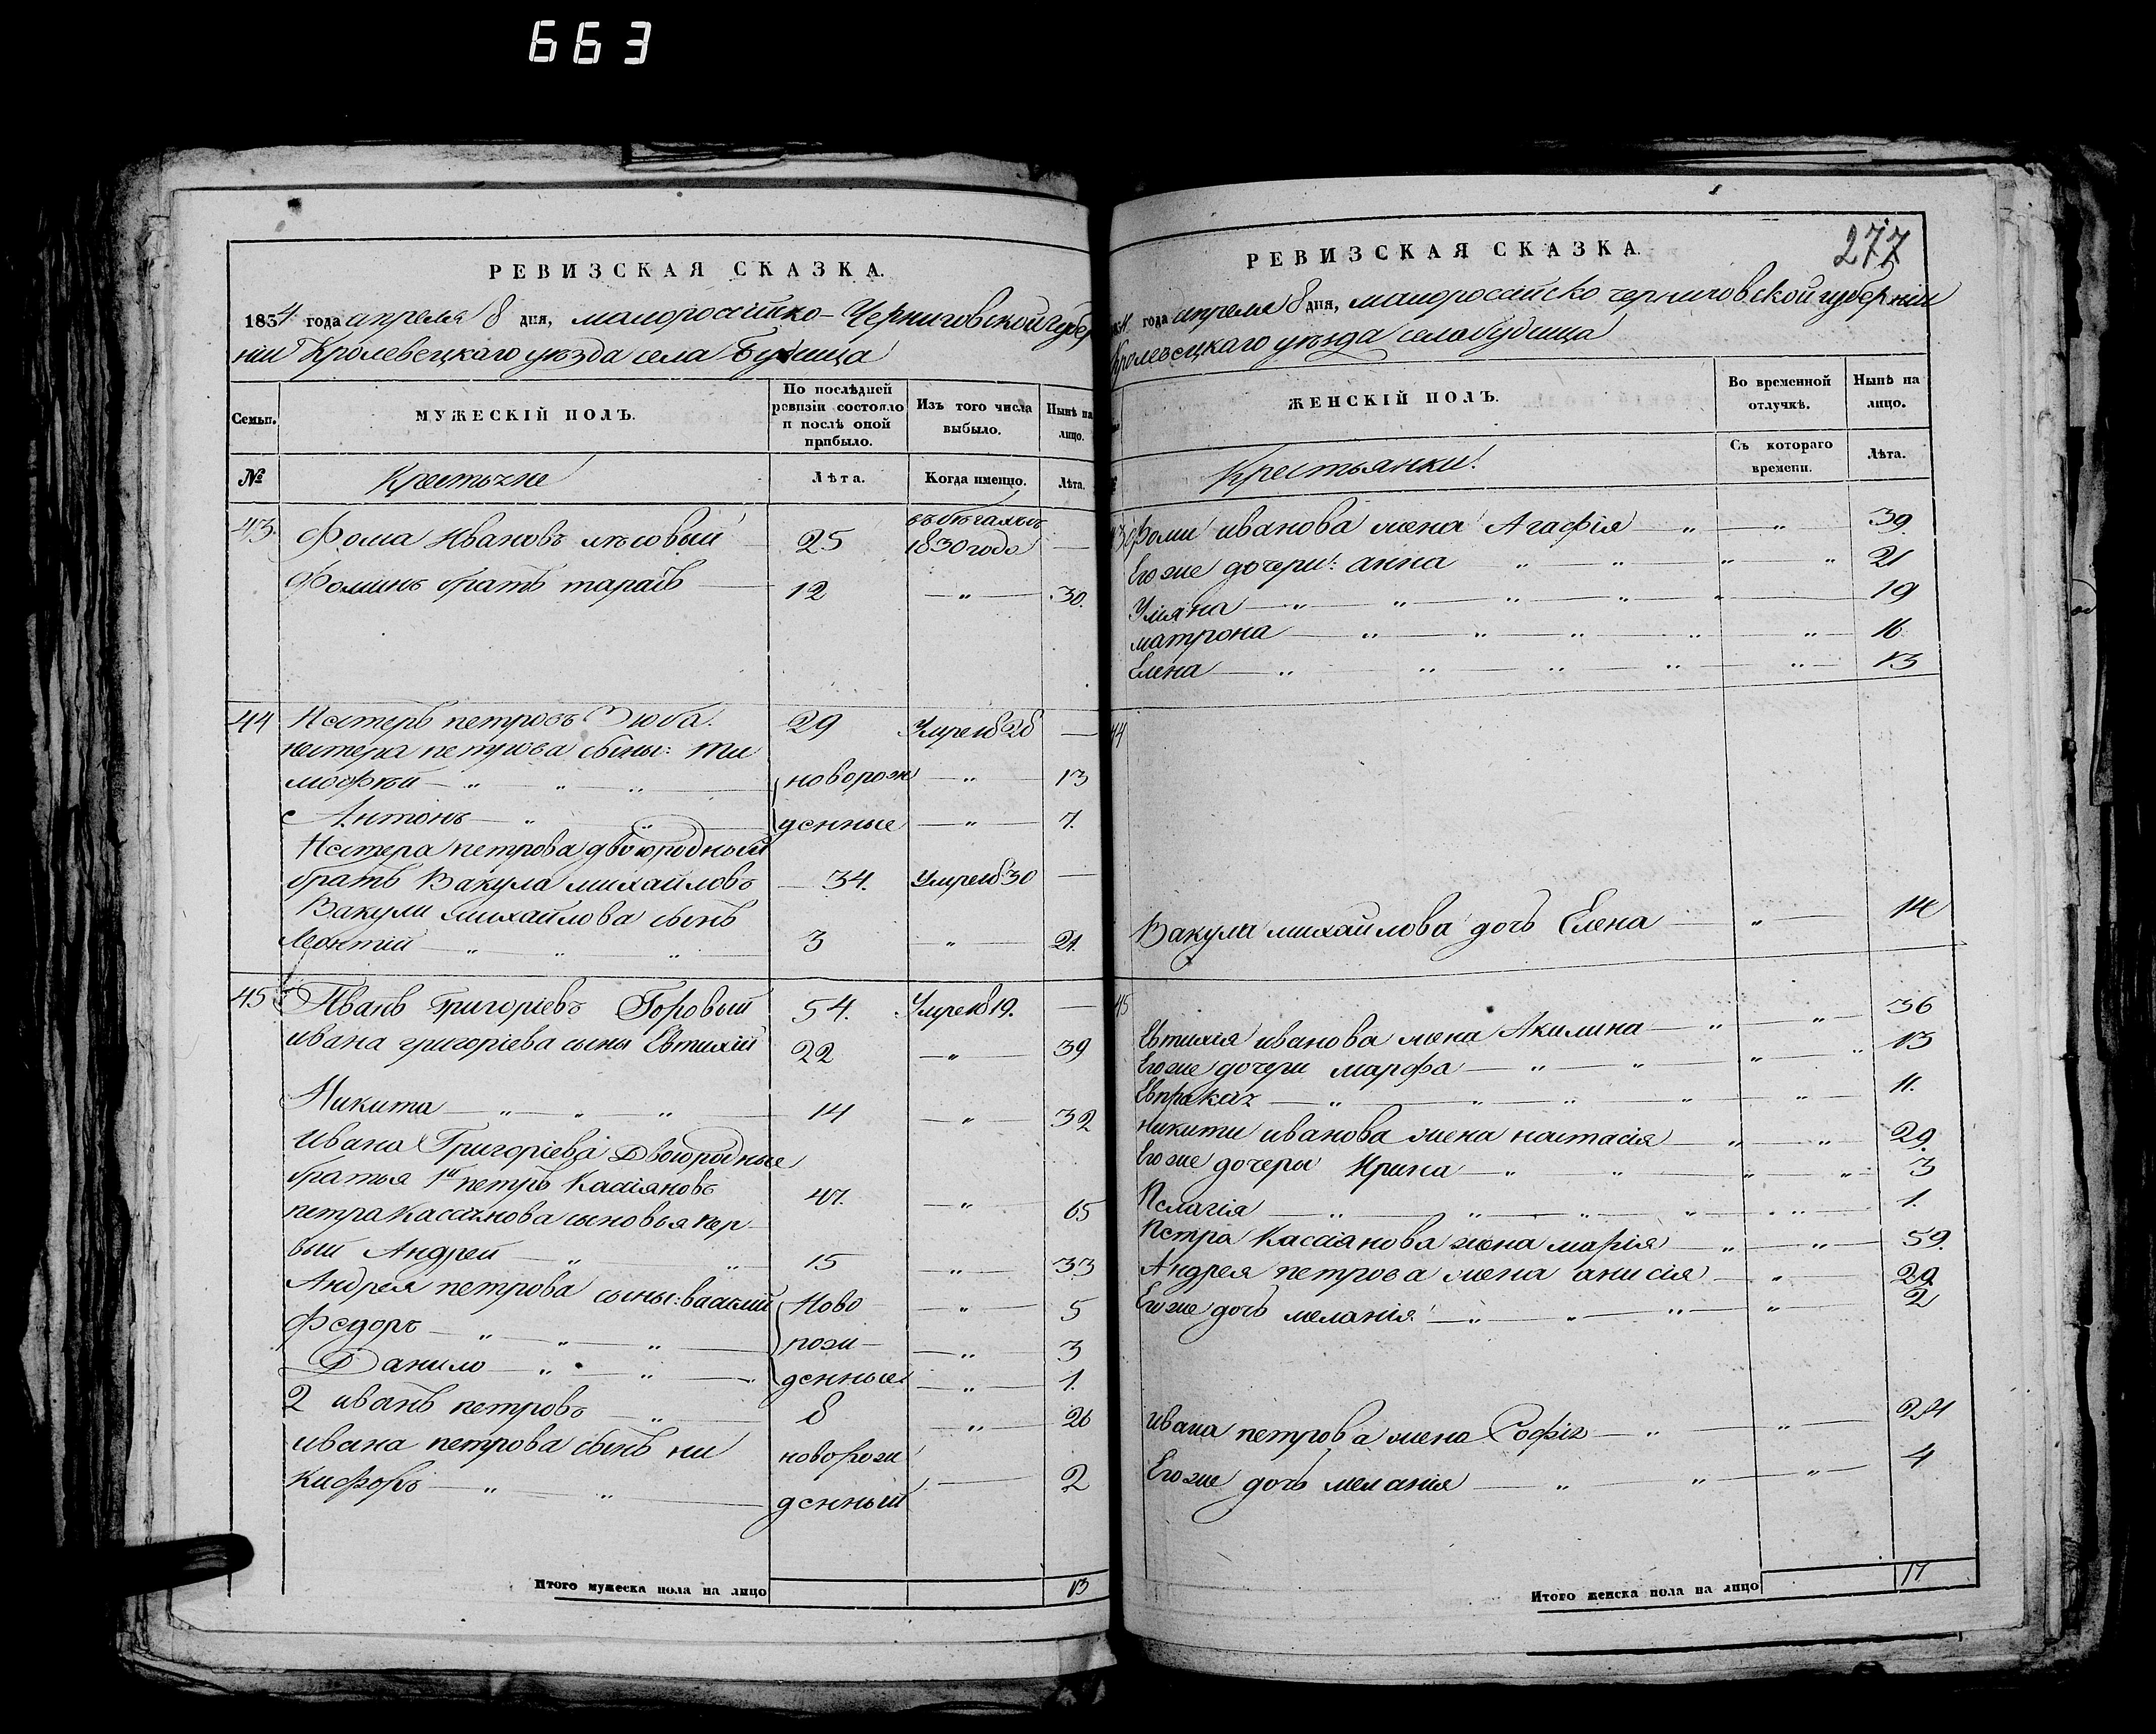 663
РЕВИЗСКАЯ СКАЗКА.
1834 года апреля 8 дня, малороссійско-Черниговской губер
ніи Кролевецкаго уѣзда села Будища
Семьи. МУЖЕСКІЙ ПОЛЪ. По послѣдней ревизіи состояло и послѣ оной прибыло. Изъ того числа выбыло. Нынѣ на лицо.
№ Крестьяне Лѣта. Когда именно. Лѣта.
43. Фома Ивановъ 25 въ бѣгахъ съ 1830 года —
Фоминъ братъ тарасъ — 12 — „ — 30.
44 Нестеръ петровъ Зюба 29 Умре 1828 —
нестера петрова сыны: ти
мофѣй — „ „ „ новорож — „ — 13
Антонъ — „ „ денные — „ — 7.
Нестера петрова двоюродный
братъ Вакула михайловъ — 34. Умре 1830 —
Вакули михайлова сынъ
Леонтій — „ „ „ 3 „ — 21.
45 Иванъ Григоріевъ Боровый 54. Умре 1819. —
ивана григоріева сыны Евтихій 22 — „ — 39
Никита — „ — „ — „ 14 — „ — 32
Ивана Григоріева Двоюродные
братья 1й петръ Касіяновъ 47. — „ — 65
петра Касіянова сыновья пер
вый Андрей — „ „ 15 — „ — 33
Андрея петрова сыны: василий Ново — „ — 5
Федоръ — „ — „ — „ рож — — „ — 3
Данило — „ — „ — денные — „ — 1.
2 иванъ петровъ — „ 8 — „ — 26
ивана петрова сынъ ни новорож
кифоръ — „ „ денный — 2
Итого мужеска пола на лицо 13
РЕВИЗСКАЯ СКАЗКА.
277
года апреля 8 дня, малоросайско черниговской губерніи
Кролевецкаго уѣзда села будища
ЖЕНСКІЙ ПОЛЪ. Во временной отлучкѣ. Нынѣ на лицо.
Крестьянки Съ котораго времени. Лѣта.
43 Фоми иванова жена Агафія „ — „ — 39.
Егоже дочери: анна „ — „ „ „ 21
Уляна — „ „ „ „ „ 19
матрона — „ „ „ „ „ 16
Елена — „ „ „ „ „ 13
44
Вакули михайлова дочь Елена — „ — 14
45
Евтихія иванова жена Акилина — „ — „ — 36
Егоже дочери марфа — „ — „ „ „ 13
Евпракія — „ „ „ „ „ 11.
никити иванова жена настасія — „ „ — 29.
Егоже дочеры Ирина — „ „ „ „ 3
Пелагія — „ „ „ „ „ 1.
Петра Касіянова жена марія — „ — „ — 59.
Андрея петрова жена анисія — „ — 29
Егоже дочь меланія — „ „ „ — „ 2
ивана петрова жена Софія — „ „ 24
Егоже дочь мелания — „ „ — „ — 4
Итого женска пола на лицо 17